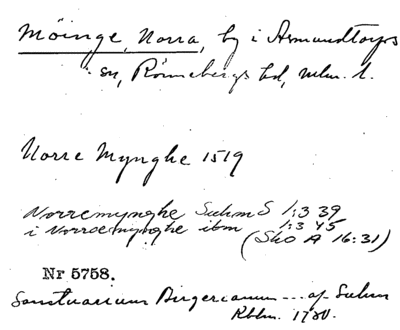 Möinge, Norra, by i Asmundtorps
sn, Rönnebergs hd, mlm. l.
Norre Mynghe 1519
Norremynghe SuhmS 1:3 39
i Norroemynghe ibm 1:3 45
(SkO A 16:31)
Nr 5758.
Sanctuarium Birgerianum --- af Suhm
Kbhn. 1780.